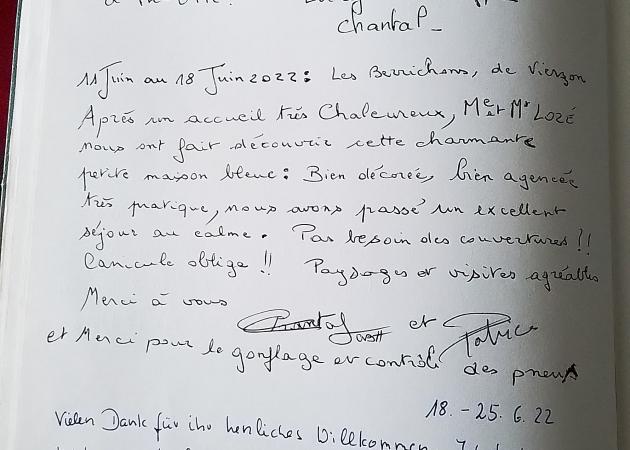 Chantal_
11 Juin au 18 Juin 2022: Les Berrichons, de Vierzon
Après un accueil très Chaleureux, Me et Mr LOZÉ
nous ont fait découvrir cette charmante
petite maison bleue: Bien décorée, bien agencée
très pratique, nous avons passé un excellent
séjour au calme. Pas besoin des couvertures!!
Canicule oblige!! Paysages et visites agréables
Merci à vous
Chantal et Patrice
et Merci pour le gonflage et contrôle des pneus
18. - 25. 6. 22
Vielen Dank für ihr herzliches Willkommen